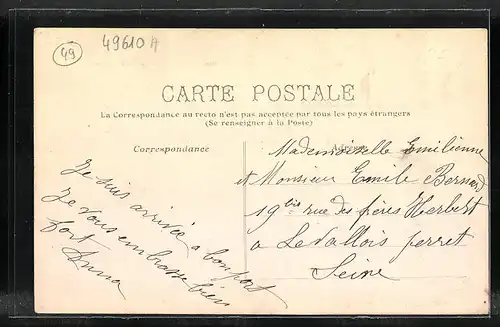 49
49610 A
CARTE POSTALE
La Correspondance au recto n'est pas acceptée par tous les pays étrangers
(Se renseigner à la Poste)
Correspondance
Je suis arrivée a bon port
Je vous embrasse bien
fort
Anna
Mademoiselle Emilienne
et Monsieur Emile Bernard
19 bis rue des frères Herbert
a Levallois perret
Seine